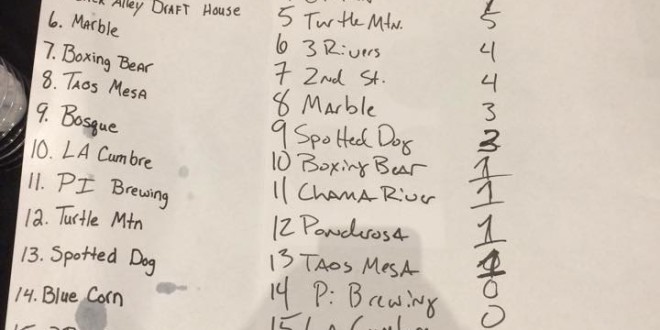 Alley Draft House
6. Marble
7. Boxing Bear
8. Taos Mesa
9. Bosque
10. LA Cumbre
11. PI Brewing
12. Turtle Mtn
13. Spotted Dog
14. Blue Corn
5 Turtle Mtn. 5
6 3 Rivers 4
7 2nd St. 4
8 Marble 3
9 Spotted Dog 3
10 Boxing Bear 1
11 Chama River 1
12 Ponderosa 1
13 Taos Mesa 1
14 Pi Brewing 0
15 La Cumbre 0